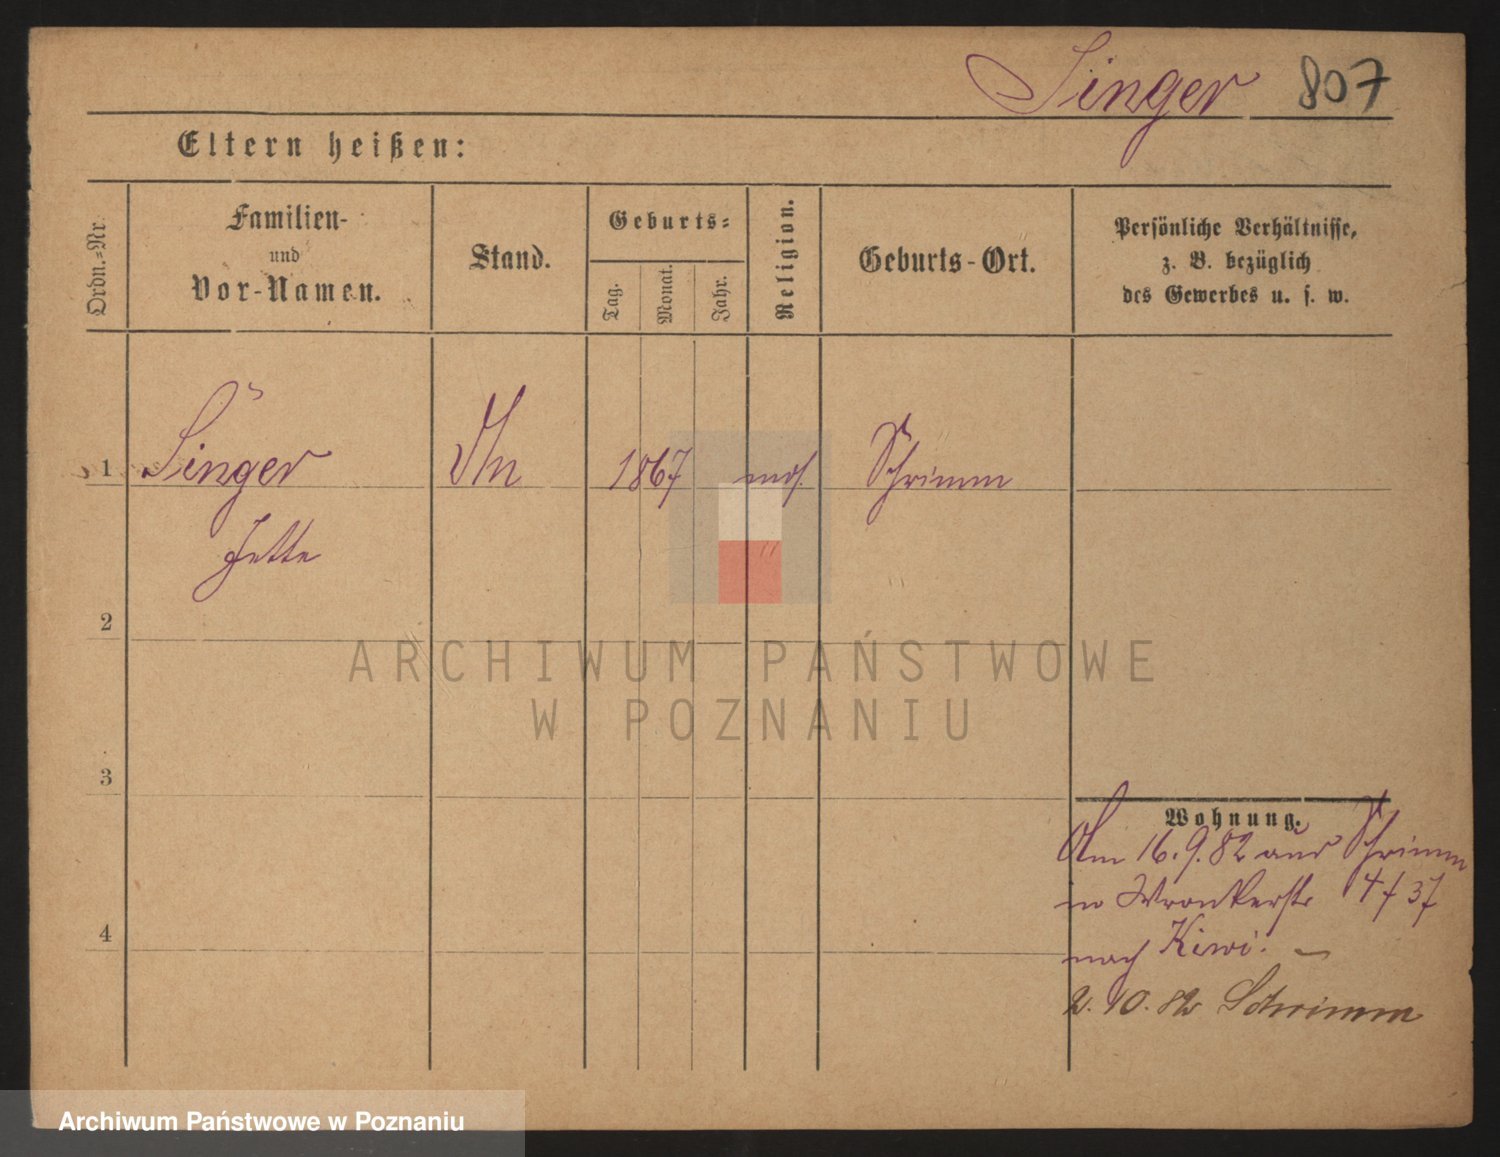 Singer 807
Eltern heißen:
Ordn.-Nr.
Familien-
und
Vor-Namen.
Stand.
Geburts-
Tag.
Monat.
Jahr.
Religion.
Geburts-Ort.
Persönliche Verhältnisse,
z. B. bezüglich
des Gewerbes u. s. w.
1 Singer 1867 mos. Schrimm
Jette
2
ARCHIWUM PAŃSTWOWE
W POZNANIU
3
Wohnung.
Am 16.9.82 aus Schrimm
in Wronkerstr
4
nach
2.10.82 Schrimm
Archiwum Państwowe w Poznaniu